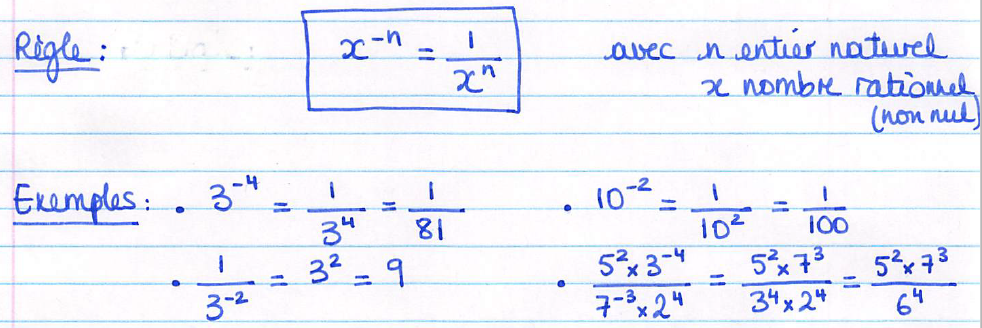 Règle : x⁻ⁿ = 1/xⁿ avec n entier naturel
x nombre rationnel
(non nul)
Exemples : • 3⁻⁴ = 1/3⁴ = 1/81 • 10⁻² = 1/10² = 1/100
• 1/3⁻² = 3² = 9 • (5² × 3⁻⁴)/(7⁻³ × 2⁴) = (5² × 7³)/(3⁴ × 2⁴) = (5² × 7³)/6⁴